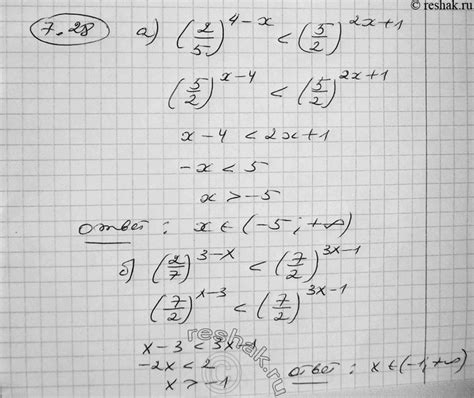 © reshak.ru
7.28 а) (2/5)^(4-x) < (5/2)^(2x+1)
(5/2)^(x-4) < (5/2)^(2x+1)
x-4 < 2x+1
-x < 5
x > -5
ответ: x ∈ (-5; +∞)
б) (2/7)^(3-x) < (7/2)^(3x-1)
(7/2)^(x-3) < (7/2)^(3x-1)
x-3 < 3x-1
-2x < 2
x > -1
ответ: x ∈ (-1; +∞)
reshak.ru